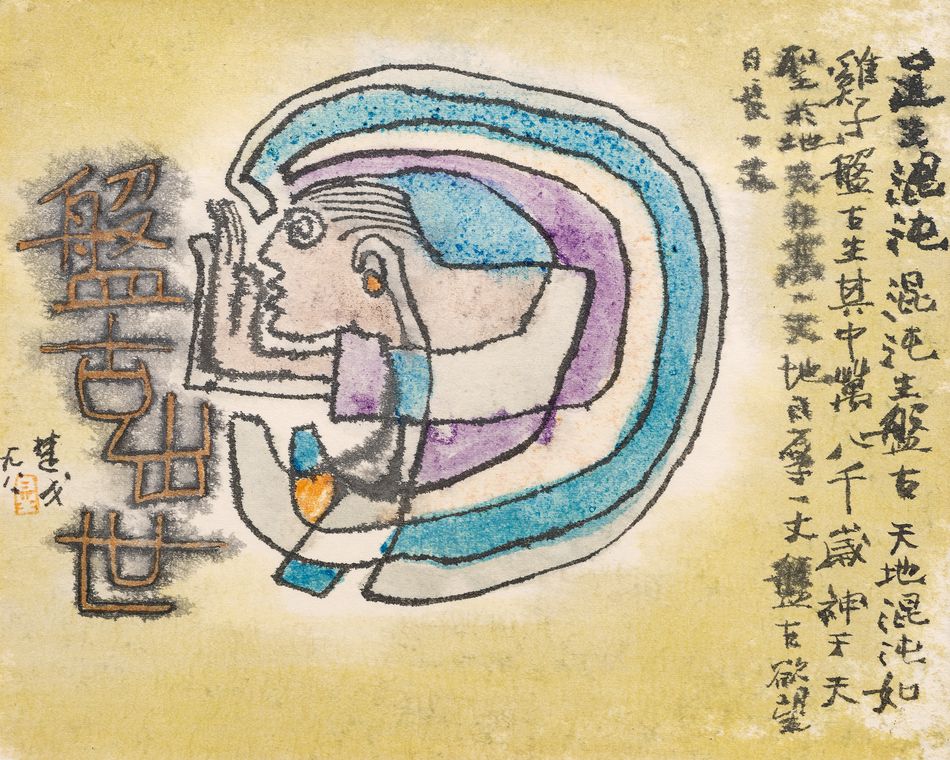 道生混沌 混沌生盤古 天地混沌如
雞子盤古生其中萬八千歲神于天
聖於地天日高一丈地日厚一丈盤古欲望
日長一丈
盤古出世
楚戈
九八